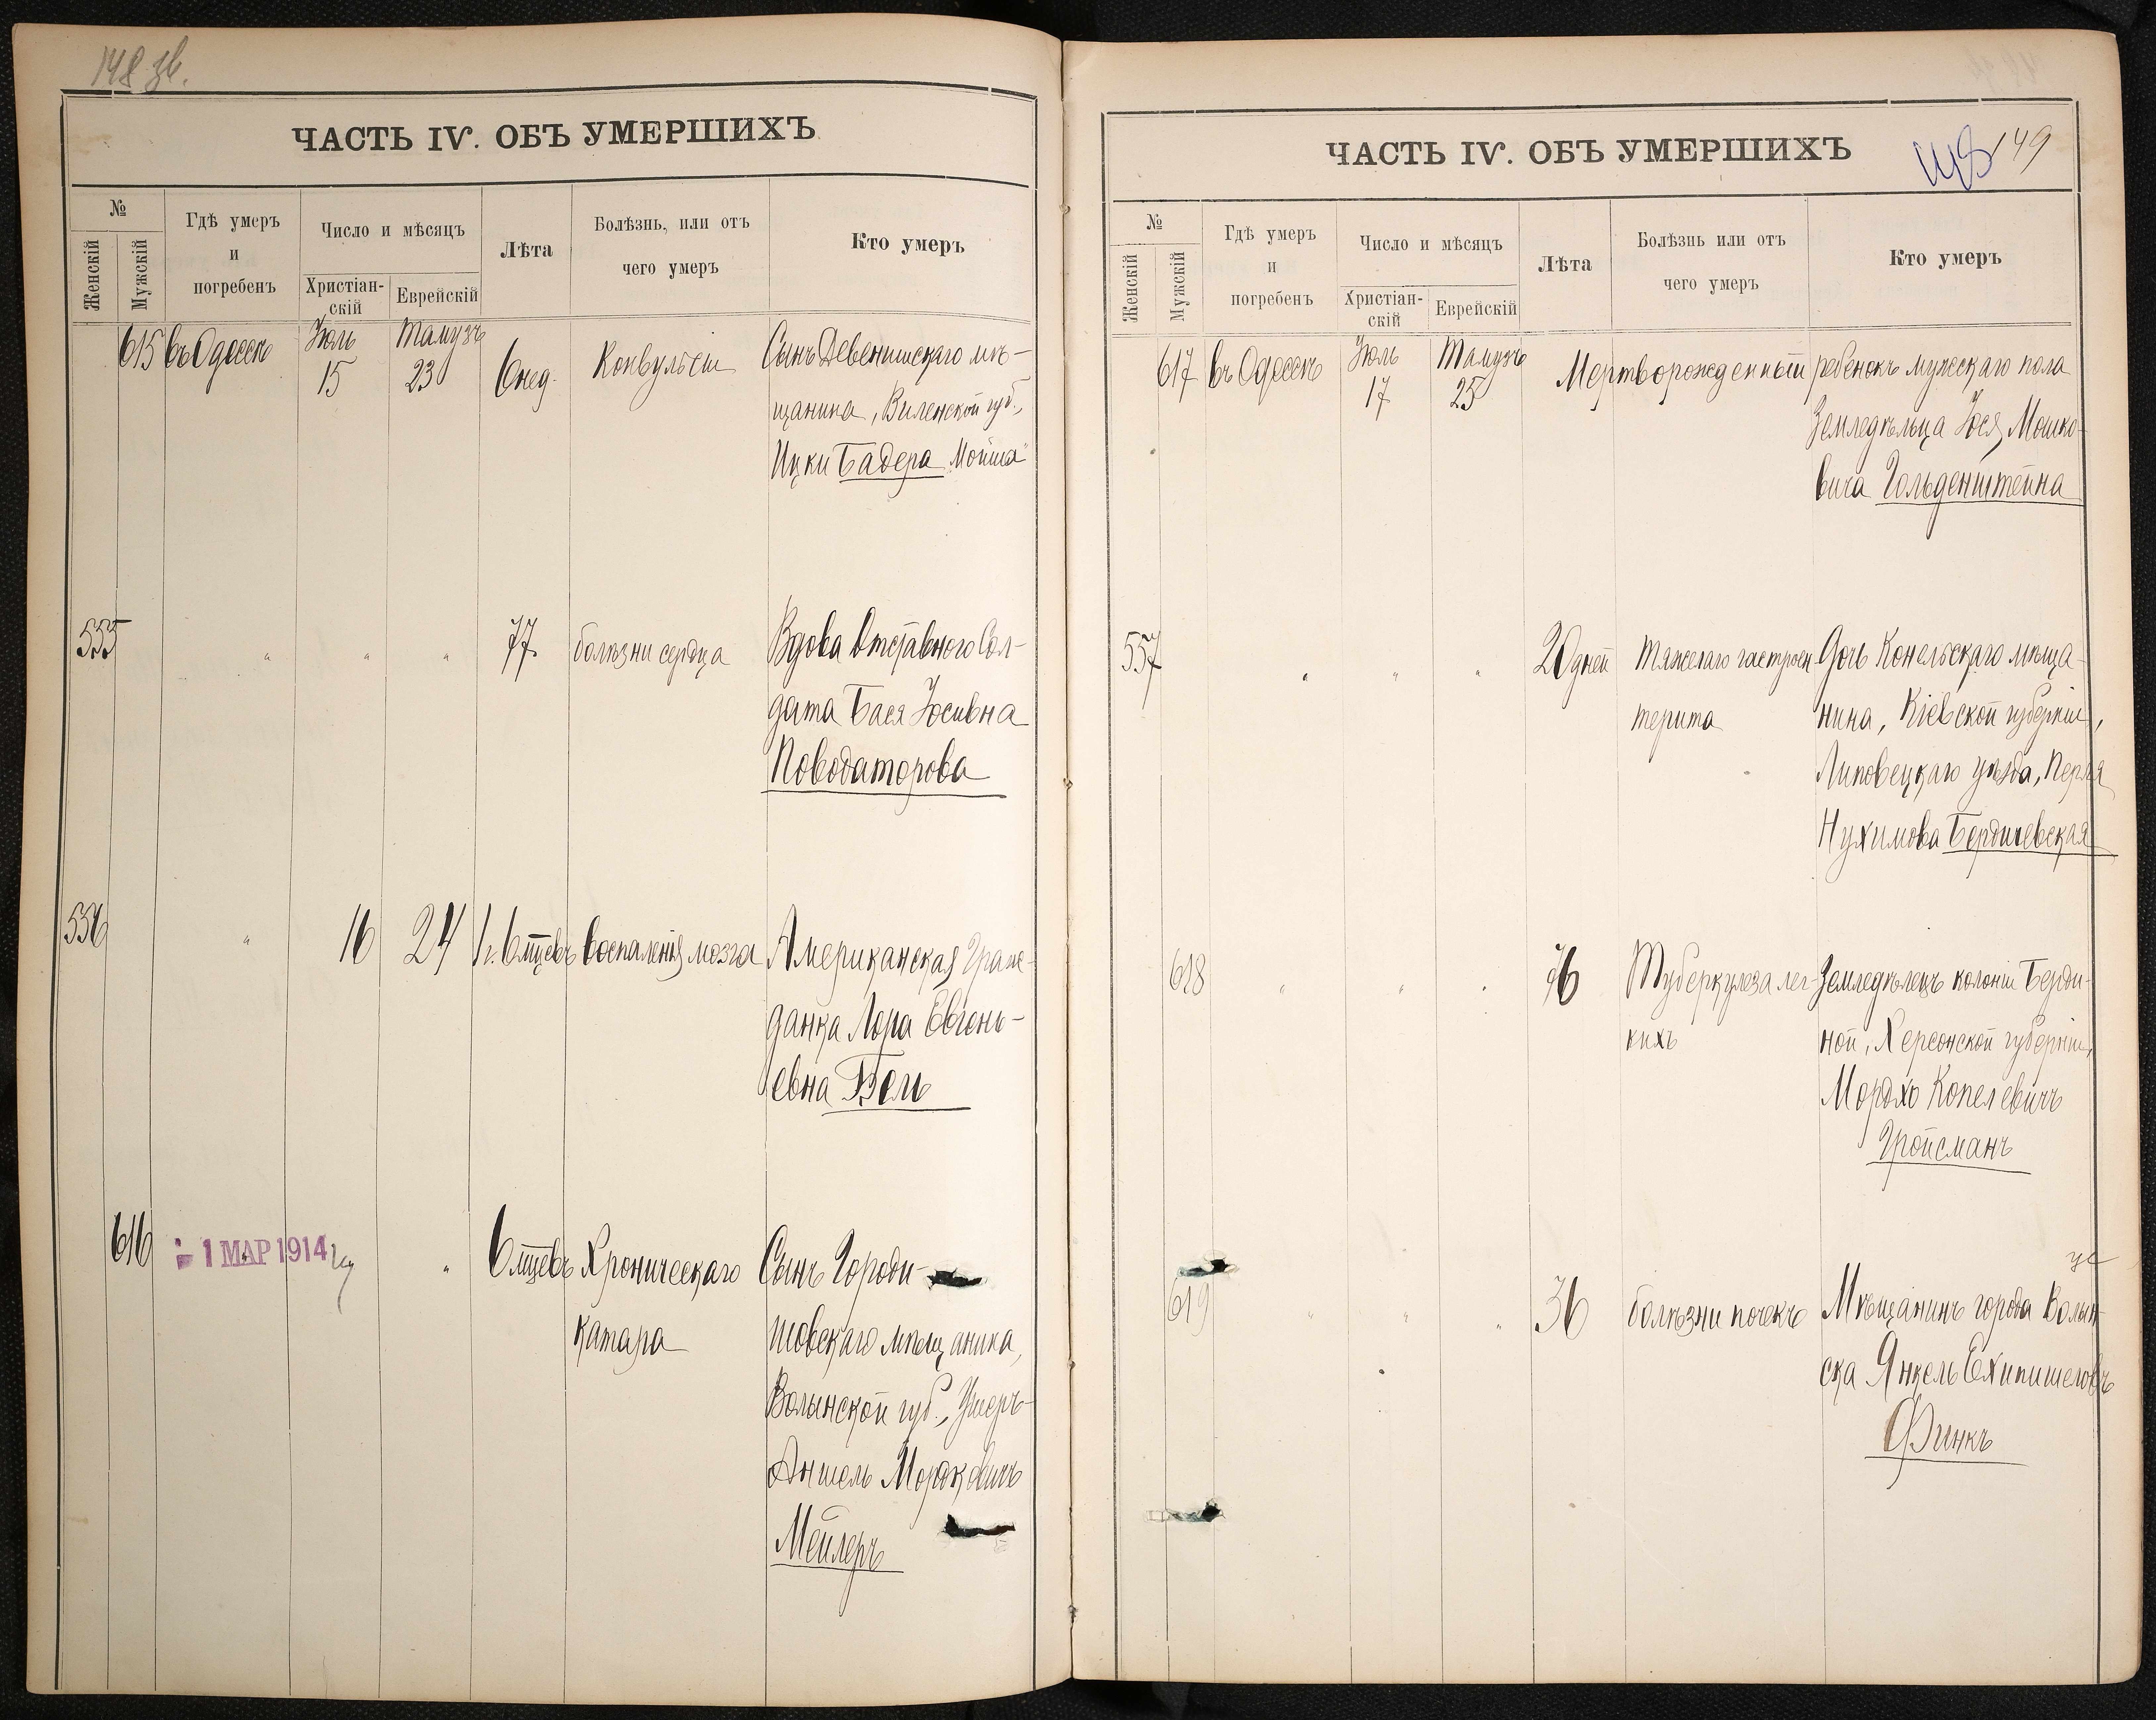 148 зв.
ЧАСТЬ IV. ОБЪ УМЕРШИХЪ
№
Женскій
Мужскій
Гдѣ умеръ
и
погребенъ
Число и мѣсяцъ
Христіан-
скій
Еврейскій
Лѣта
Болѣзнь, или отъ
чего умеръ
Кто умеръ
615 въ Одессѣ Іюль 15 Тамузъ 23 6 нед. Конвульсіи Сынъ Девенишскаго мѣ-
щанина, Виленской губ.,
Ицки Бадера „Мойша“
555 " " " 77 болѣзни сердца Вдова Отставного Сол-
дата Бася Іосивна
Поводаторова
556 " 16 24 1 г. 6 мцевъ Воспаленія мозга Американская Граж-
данка Лора Евгень-
евна Бель
616 " " 6 мцевъ Хроническаго Сынъ Городи-
катара шовскаго мѣщанина,
Волынской губ., Ушеръ-
Аншель Мордковичъ
Мейлеръ
1 МАР 1914
ЧАСТЬ IV. ОБЪ УМЕРШИХЪ
149
№
Женскій
Мужскій
Гдѣ умеръ
и
погребенъ
Число и мѣсяцъ
Христіан-
скій
Еврейскій
Лѣта
Болѣзнь или отъ
чего умеръ
Кто умеръ
617 въ Одессѣ Іюль 17 Тамузъ 25 Мертворожденный ребенокъ мужескаго пола
Земледѣльца Іося Мошко-
вича Гольденштейна
557 " " " 20 дней Тяжелаго гастроен- Дочь Конельскаго мѣща-
терита нина, Кіевской губерніи,
Липовецкаго уѣзда, Перля
Нухимова Бердичевская
618 " " " 76 Туберкулеза лег- Земледѣлецъ колоніи
кихъ ной, Херсонской губерніи,
Мордхо Копелевичъ
Гройсманъ
619 " " " 36 болѣзни почекъ Мѣщанинъ города
ска Янкель
Финкъ